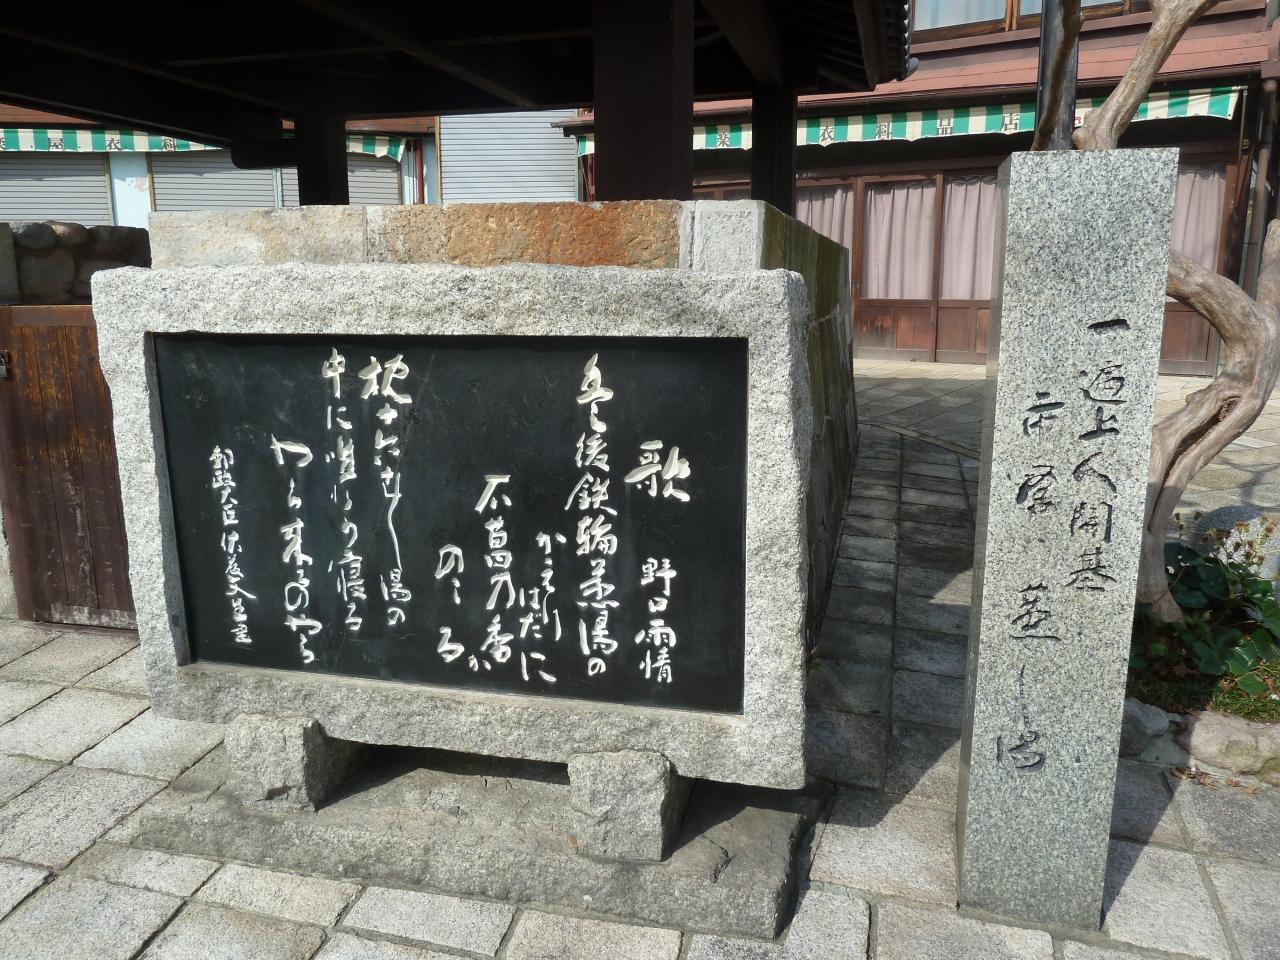 屋衣料
衣料品店
歌 野口雨情
豊後鉄輪蒸湯の
かへりはだに
石菖乃香か
のこる
枕十六むし湯の
中に 寝る
やら来るのやら
郵政大臣佐藤文生書
一遍上人開基
市営 蒸し湯